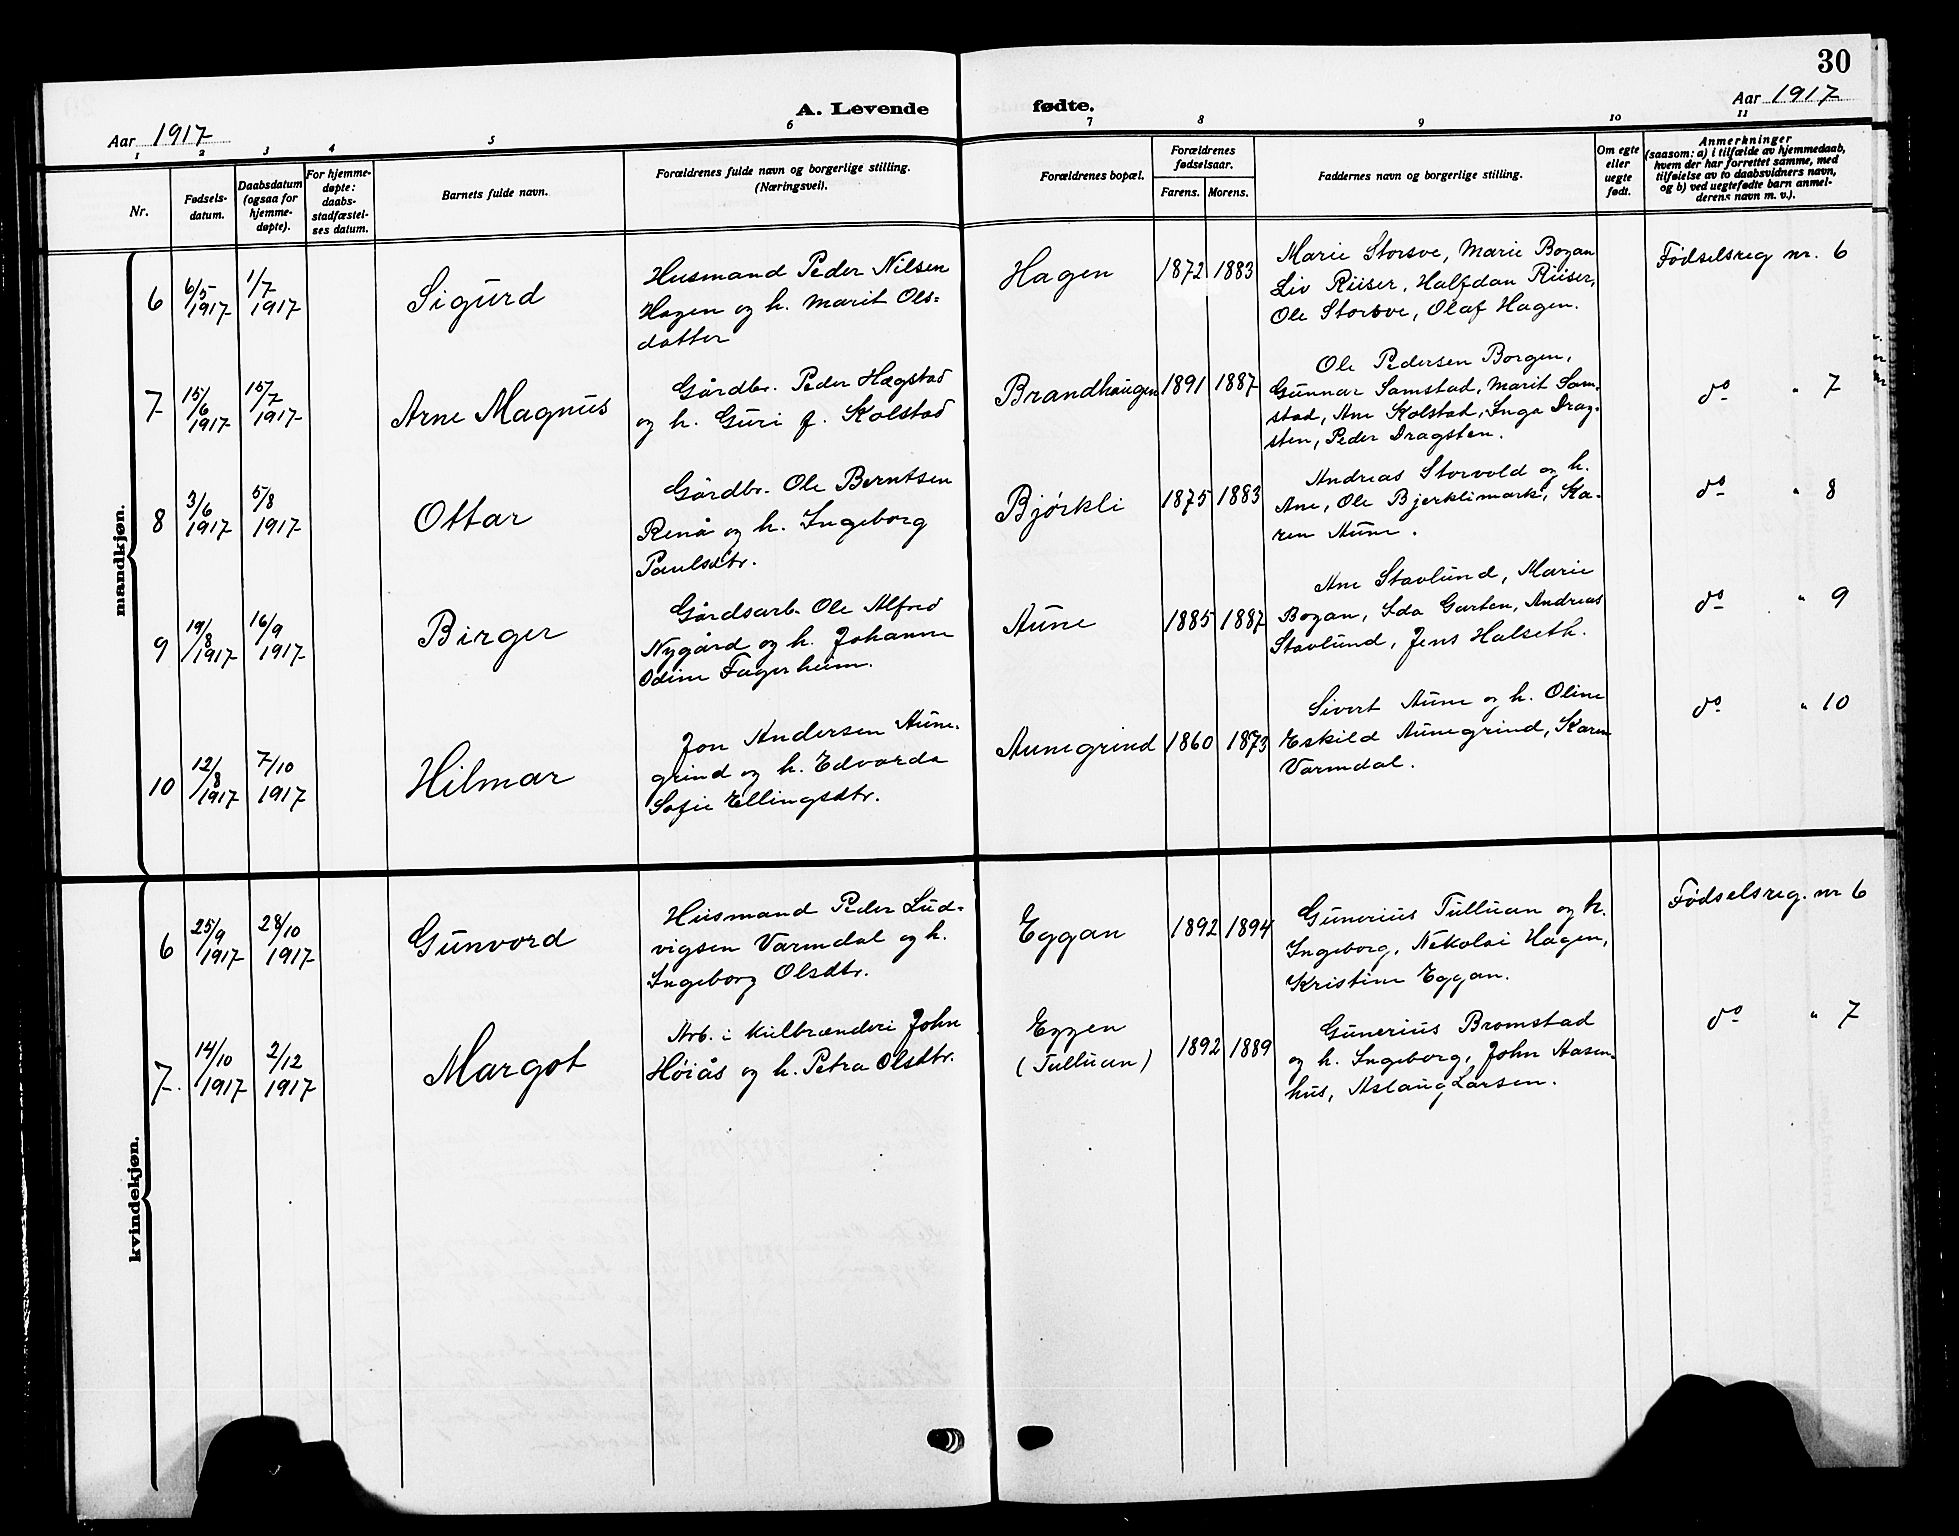 30
A. Levende fødte.
Aar 1917
Aar 1917
1 2 3 4 5 6 7 8 9 10 11
Nr.
Fødsels-
datum.
Daabsdatum
(ogsaa for
hjemme-
døpte).
For hjemme-
døpte:
daabs-
stadfæstel-
ses datum.
Barnets fulde navn.
Forældrenes fulde navn og borgerlige stilling.
(Næringsvei).
Forældrenes bopæl.
Forældrenes
fødselsaar.
Farens. Morens.
Faddernes navn og borgerlige stilling.
Om egte
eller
uegte
født.
Anmerkninger
(saasom: a) i tilfælde av hjemmedaab,
hvem der har forrettet samme, med
tilføielse av to daabsvidners navn,
og b) ved uegtefødte barn anmel-
derens navn m. v.).
mandkjøn.
6
6/5
1917
1/7
1917
Sigurd
Husmand Peder Nilsen
Hagen og h. Marit Ols-
datter
Hagen
1872 1883
Marie Storsve, Marie Bogan
Liv Riiser, Halfdan Riiser,
Ole Storsve, Olaf Hagen.
Fødselsreg nr. 6
7
15/6
1917
15/7
1917
Arne Magnus
Gårdbr. Peder Hægstad
og h. Guri f. Kolstad
Brandhaugen
1891 1887
Ole Pedersen Borgen,
Gunnar Samstad, Marit Sam-
stad, Ane Kolstad, Inga Drag-
sten, Peder Dragsten.
do " 7
8
3/6
1917
5/8
1917
Ottar
Gårdbr. Ole Berntsen
Renå og h. Ingeborg
Paulsdtr.
Bjørkli
1875 1883
Andreas Storvold og h.
Ane, Ole Bjerklimark, Ka-
ren Aune.
do " 8
9
19/8
1917
16/9
1917
Birger
Gårdsarb. Ole Alfred
Nygård og h. Johanne
Odine Fagerheim.
Aune
1885 1887
Ane Stavlund, Marie
Bogan, Ida Garten, Andreas
Stavlund, Jens Halseth.
do " 9
10
12/8
1917
7/10
1917
Hilmar
Jon Andersen Aune-
grind og h. Edvarda
Sofie Ellingsdtr.
Aunegrind
1860 1873
Sivert Aune og h. Oline
Eskild Aunegrind, Karen
Varmdal.
do " 10
kvindekjøn.
6
25/9
1917
28/10
1917
Gunvord
Husmand Peder Lud-
vigsen Varmdal og h.
Ingeborg Olsdtr.
Eggan
1892 1894
Gunerius Tulluan og h.
Ingeborg, Nekolai Hagen,
Kristine Eggan.
Fødselsreg. nr 6
7.
14/10
1917
2/12
1917
Margot
Arb. i kulbrænderi John
Høiås og h. Petra Olsdtr.
Eggen
(Tulluan)
1892 1889
Gunerius Bromstad
og h. Ingeborg, John Aasen-
hus, Aslaug Larsen.
do " 7